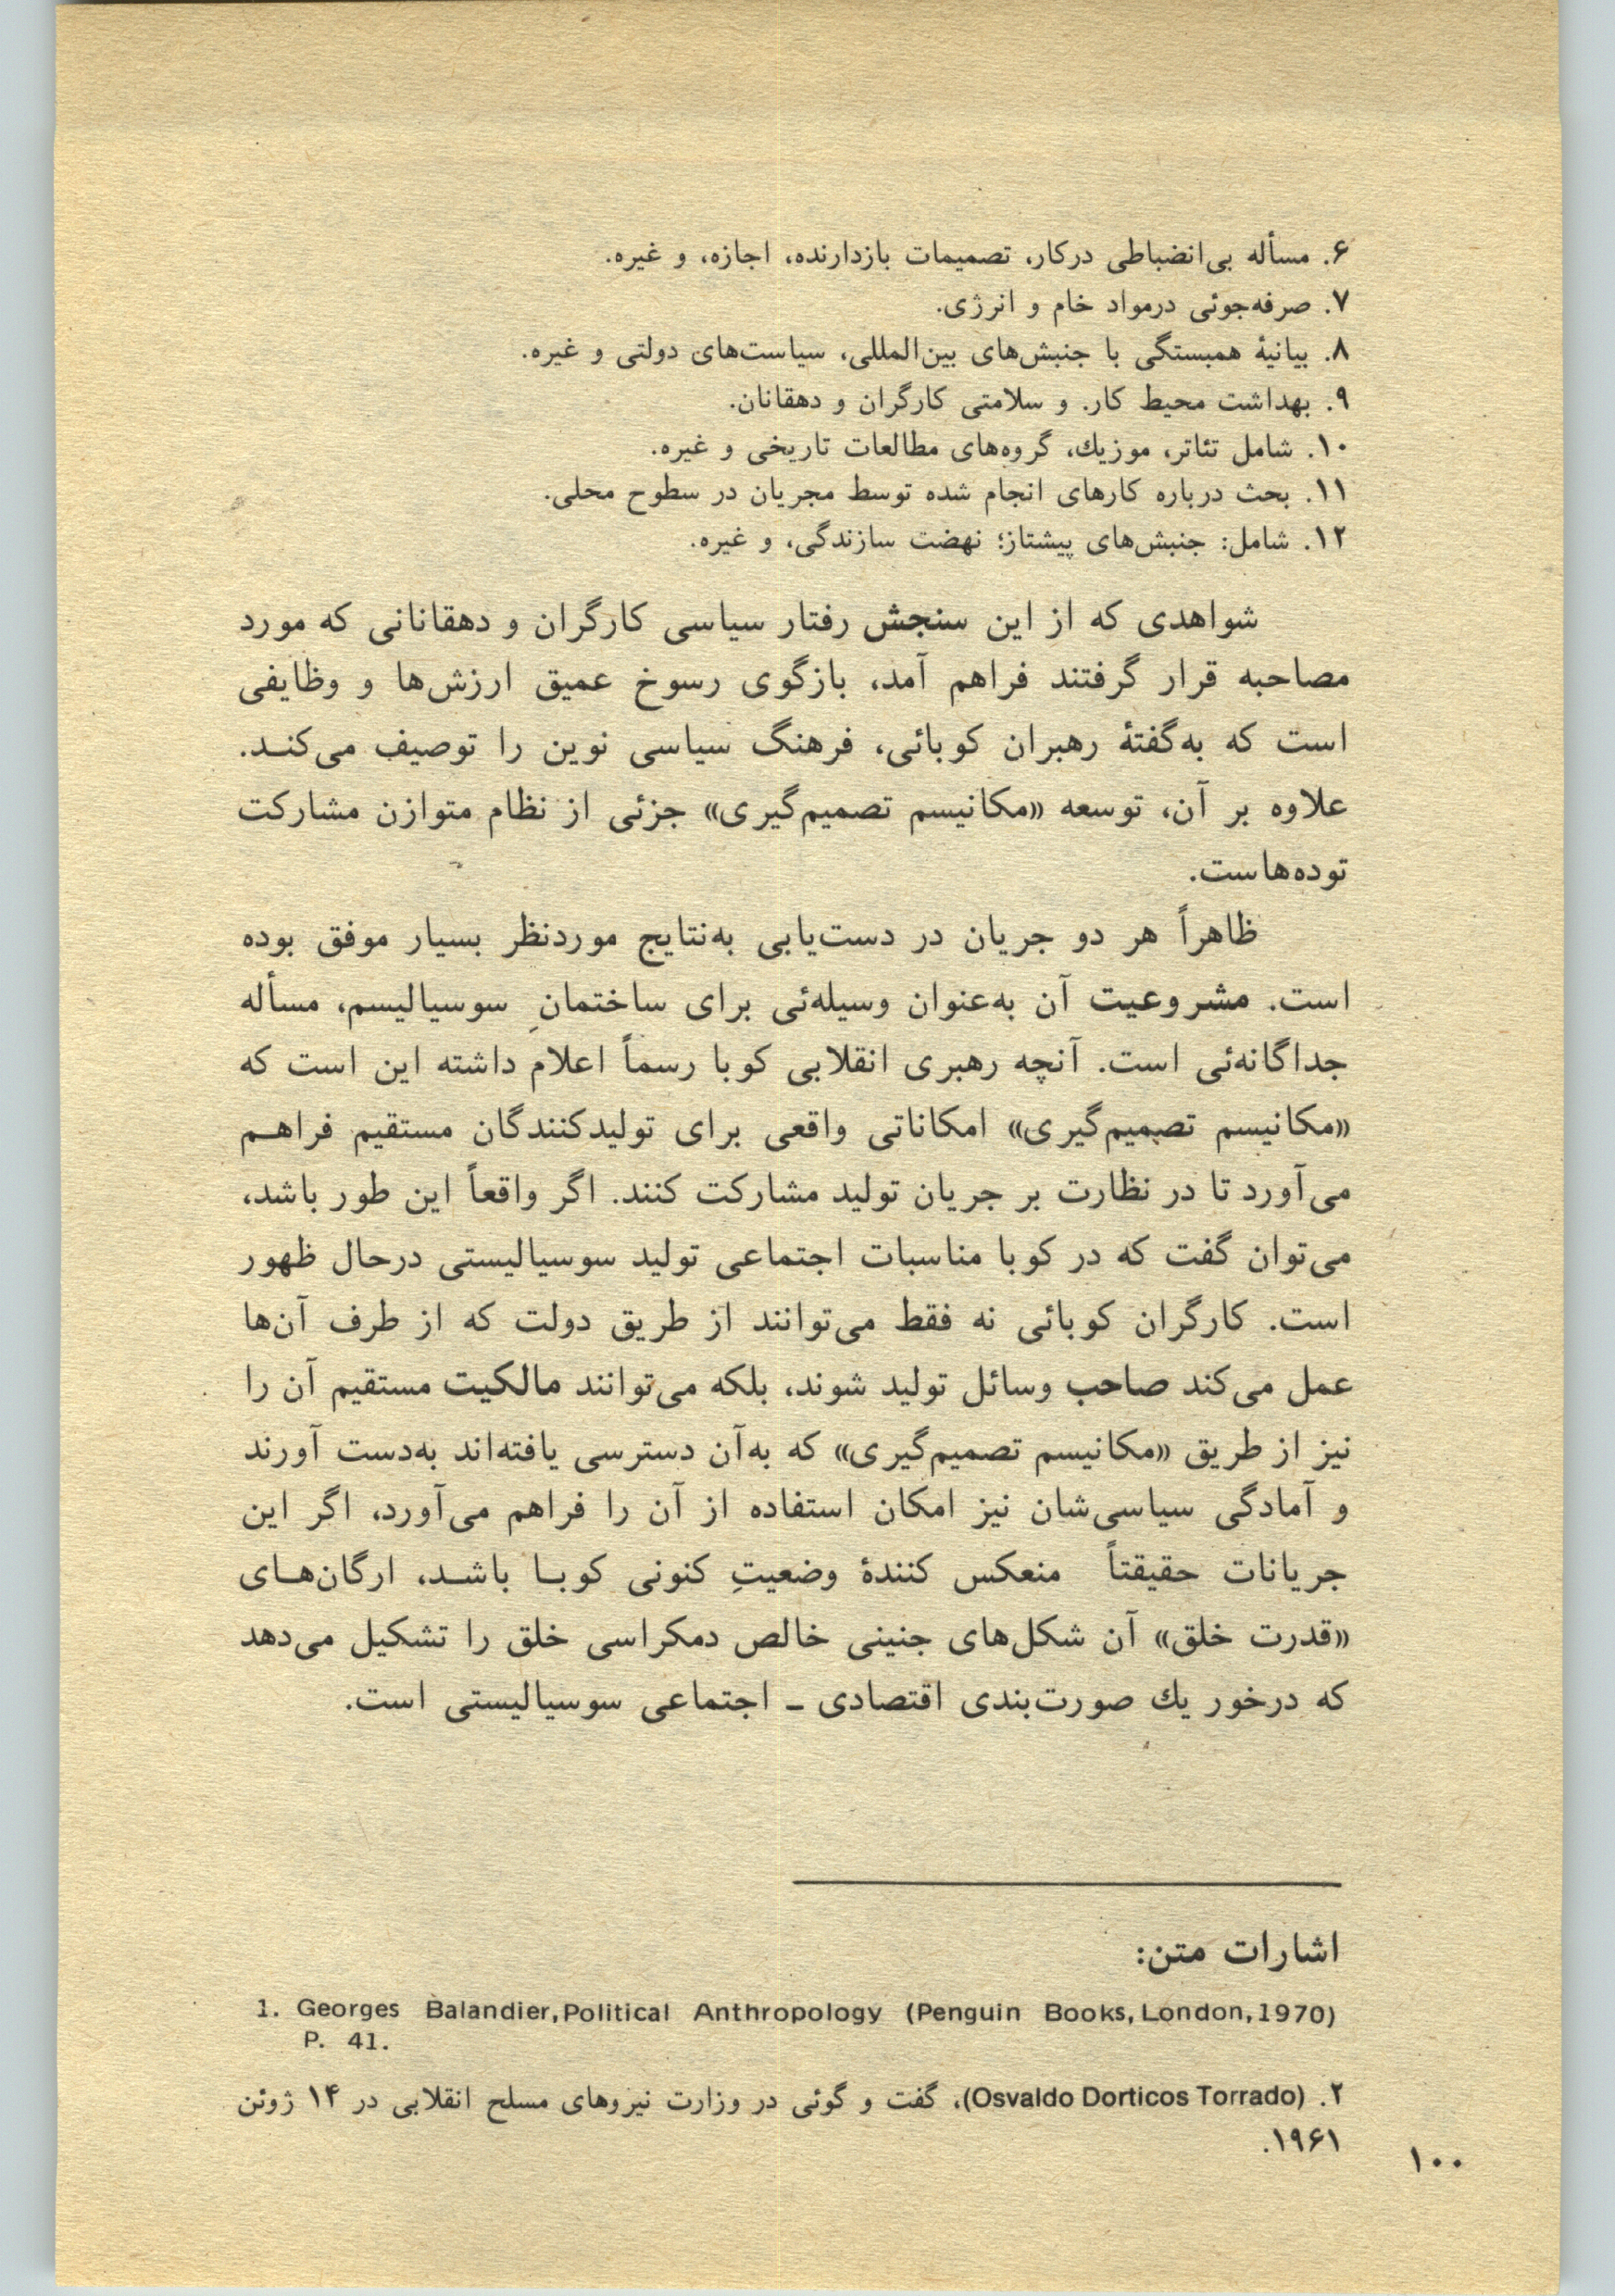 ۶. مسأله بی‌انضباطی درکار، تصمیمات بازدارنده، اجازه، و غیره.
۷. صرفه‌جوئی درمواد خام و انرژی.
۸. بیانیهٔ همبستگی با جنبش‌های بین‌المللی، سیاست‌های دولتی و غیره.
۹. بهداشت محیط کار. و سلامتی کارگران و دهقانان.
۱۰. شامل تئاتر، موزیك، گروه‌های مطالعات تاریخی و غیره.
۱۱. بحث درباره کارهای انجام شده توسط مجریان در سطوح محلی.
۱۲. شامل: جنبش‌های پیشتاز؛ نهضت سازندگی، و غیره.
شواهدی که از این سنجش رفتار سیاسی کارگران و دهقانانی که مورد
مصاحبه قرار گرفتند فراهم آمد، بازگوی رسوخ عمیق ارزش‌ها و وظایفی
است که به‌گفتهٔ رهبران کوبائی، فرهنگ سیاسی نوین را توصیف می‌کند.
علاوه بر آن، توسعه «مکانیسم تصمیم‌گیری» جزئی از نظام متوازن مشارکت
توده‌هاست.
ظاهراً هر دو جریان در دست‌یابی به‌نتایج موردنظر بسیار موفق بوده
است. مشروعیت آن به‌عنوان وسیله‌ئی برای ساختمانِ سوسیالیسم، مسأله
جداگانه‌ئی است. آنچه رهبری انقلابی کوبا رسماً اعلام داشته این است که
«مکانیسم تصمیم‌گیری» امکاناتی واقعی برای تولیدکنندگان مستقیم فراهم
می‌آورد تا در نظارت بر جریان تولید مشارکت کنند. اگر واقعاً این طور باشد،
می‌توان گفت که در کوبا مناسبات اجتماعی تولید سوسیالیستی درحال ظهور
است. کارگران کوبائی نه فقط می‌توانند از طریق دولت که از طرف آن‌ها
عمل می‌کند صاحب وسائل تولید شوند، بلکه می‌توانند مالکیت مستقیم آن را
نیز از طریق «مکانیسم تصمیم‌گیری» که به‌آن دسترسی یافته‌اند به‌دست آورند
و آمادگی سیاسی‌شان نیز امکان استفاده از آن را فراهم می‌آورد، اگر این
جریانات حقیقتاً منعکس کنندهٔ وضعیتِ کنونی کوبا باشد، ارگان‌های
«قدرت خلق» آن شکل‌های جنینی خالص دمکراسی خلق را تشکیل می‌دهد
که درخور یك صورت‌بندی اقتصادی ـ اجتماعی سوسیالیستی است.
اشارات متن:
1. Georges Balandier, Political Anthropology (Penguin Books, London, 1970)
P. 41.
۲. (Osvaldo Dorticos Torrado)، گفت و گوئی در وزارت نیروهای مسلح انقلابی در ۱۴ ژوئن
۱۹۶۱.
۱۰۰